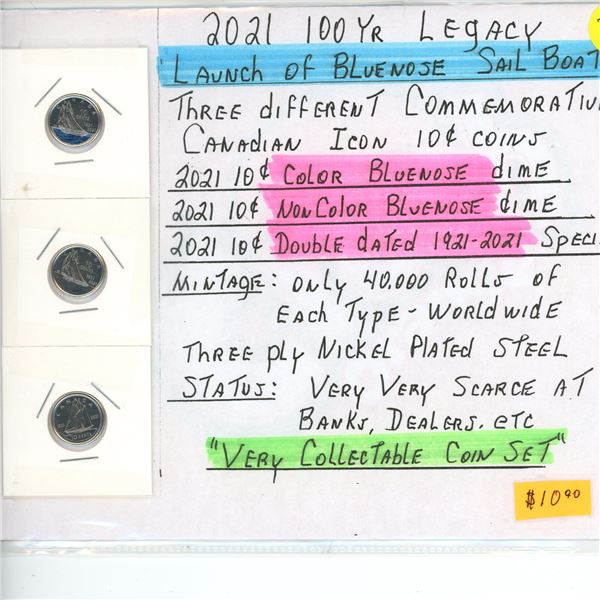 2021 100 Yr Legacy
Launch of Bluenose Sail Boat
Three different Commemorativ
Canadian Icon 10¢ coins
2021 10¢ Color Bluenose dime
2021 10¢ NonColor Bluenose dime
2021 10¢ Double dated 1921-2021 Speci
Mintage: only 40.000 Rolls of
Each Type - Worldwide
Three ply Nickel Plated Steel
Status: Very Very Scarce at
Banks, Dealers. etc
"Very Collectable Coin Set"
$10.00
CANADA
10 CENTS